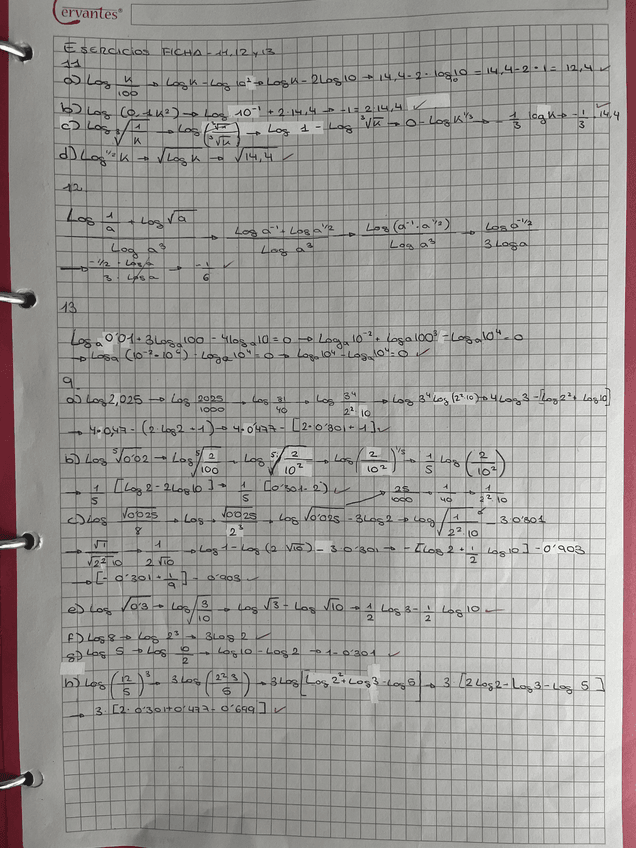 Cervantes®
EJERCICIOS FICHA - 11, 12 y 13
11
a) Log K/100 → Log K - Log 10² → Log K - 2 Log 10 → 14,4 - 2 · log₁₀10 = 14,4 - 2 · 1 = 12,4 ✓
b) Log (0,1K²) → Log 10⁻¹ + 2·14,4 → -1 = 2·14,4 ✓
c) Log ∛(1/K) → Log (∛1/∛K) → Log 1 - Log ∛K → 0 - Log K^(1/3) → -1/3 log K → -1/3 · 14,4 ✓
d) Log^(1/2) K → √Log K → √14,4 ✓
12
(Log 1/a + Log √a)/(Log a³) → (Log a⁻¹ + Log a^(1/2))/(Log a³) → (Log (a⁻¹ · a^(1/2)))/(Log a³) → (Log a^(-1/2))/(3 Log a)
→ (-1/2 · Log a)/(3 · Log a) → -1/6 ✓
13
Logₐ 0'01 + 3Logₐ100 - 4Logₐ10 = 0 → Logₐ10⁻² + Logₐ100³ - Logₐ10⁴ = 0
→ Logₐ (10⁻² · 10⁶) - Logₐ10⁴ = 0 → Logₐ10⁴ - Logₐ10⁴ = 0 ✓
9.
a) Log 2,025 → Log 2025/1000 → Log 81/40 → Log 3⁴/(2² 10) → Log 3⁴ Log (2² 10) → 4 Log 3 - [Log 2² + Log 10]
→ 4·0,47 - (2·Log 2 + 1) → 4·0'477 - [2·0'301 + 1] ✓
b) Log ⁵√0'02 → Log ⁵√(2/100) → Log ⁵√(2/10²) → Log (2/10²)^(1/5) → 1/5 Log (2/10²)
→ 1/5 [Log 2 - 2Log 10] → 1/5 [0'301 - 2] ✓ → 25/1000 → 1/40 → 1/(2² 10)
c) Log √0'025/8 → Log √0'025/2³ → Log √0'025 - 3Log 2 → Log √(1/(2² 10)) - 3 0'301
→ √1/√(2² 10) → 1/(2√10) → Log 1 - Log (2 √10) - 3 0'301 → -[Log 2 + 1/2 Log 10] - 0'903
→ [- 0'301 + 1/9] - 0'903 ✓
e) Log √0'3 → Log √(3/10) → Log √3 - Log √10 → 1/2 Log 3 - 1/2 Log 10 ✓
f) Log 8 → Log 2³ → 3 Log 2 ✓
g) Log 5 → Log 10/2 → Log 10 - Log 2 → 1 - 0'301 ✓
h) Log (12/5)³ → 3 Log (2² 3/5) → 3 Log [Log 2² + Log 3 - Log 5] → 3 [2 Log 2 - Log 3 - Log 5]
→ 3 [2·0'301 + 0'477 - 0'699] ✓